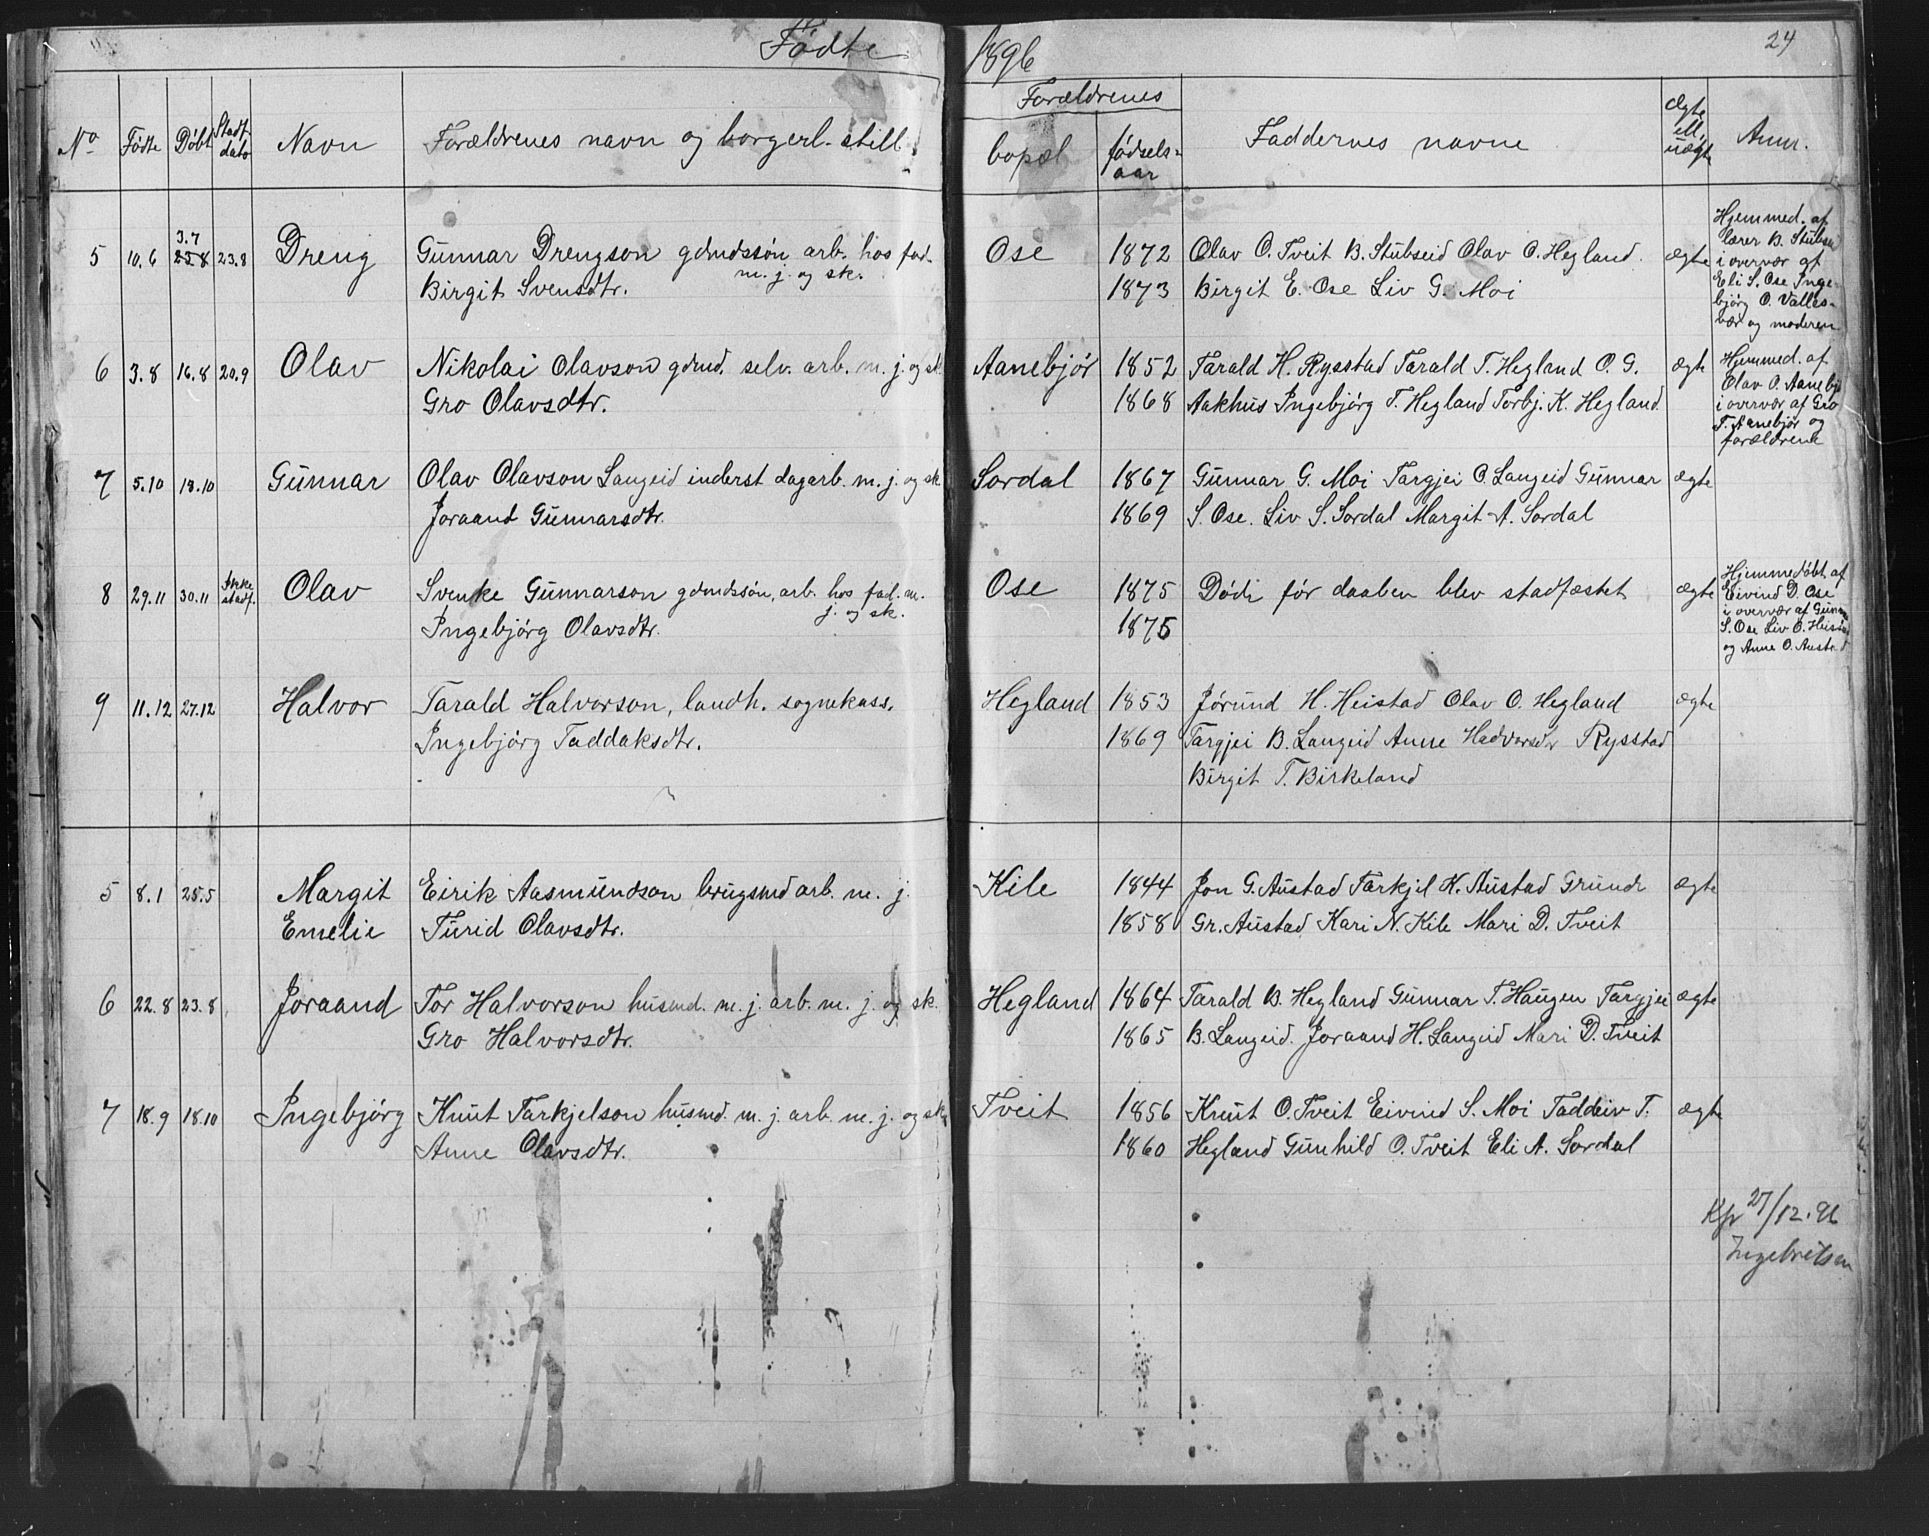 Fødte 1896 24
No Fødte Døbt Stadf. dato Navn Forældrenes navn og borgerl. still. Forældrenes bopæl fødsels-aar Faddernes navne Ægte ell. uægte Anm.
5 10.6 3.7 23.8 23.8 Dreng Gunnar Drengson gdmdssøn arb. hos fad. Ose 1872 Olav O. Tveit B. Stubseid Olav O. Hegland ægte
m. j. og sk.
Birgit Svensdtr. 1873 Birgit E. Ose Liv G. Moi
Hjemmed. af
lærer B. Stubsei
i overvær af
Eli S. Ose Inge-
bjørg O. Valles-
vær og moderen
6 3.8 16.8 20.9 Olav Nikolai Olavson gdmd. selv. arb. m. j. og sk. Aanebjør 1852 Tarald H. Rysstad Tarald T. Hegland O. G. ægte
Gro Olavsdtr. 1868 Aakhus Ingebjørg T. Hegland Torbj. K. Hegland.
Hjemmed. af
Olav O. Aanebjø
i overvær af Gro
T. Aanebjør og
forældrene
7 5.10 18.10 Gunnar Olav Olavson Langeid inderst dagarb. m. j. og sk Sordal 1867 Gunnar G. Moi Targjei O. Langeid Gunnar ægte
Joraand Gunnarsdtr. 1869 S. Ose. Liv S. Sordal Margit A. Sordal
8 29.11 30.11 Ikke stadf. Olav Svenke Gunnarson gdmdssøn, arb. hos fad. m. Ose 1875 Døde før daaben blev stadfæstet ægte
j. og sk.
Ingebjørg Olavsdtr. 1875
Hjemmedøbt af
Eivind D. Ose
i overvær af Gunn
S. Ose Liv O. Heist
og Anne O. Austad
9 11.12 27.12 Halvor Tarald Halvorson, landh. sognekass. Hegland 1853 Jørund H. Heistad Olav O. Hegland ægte
Ingebjørg Taddaksdtr. 1869 Targjei B. Langeid Anne Hadvorsdr Rysstad
Birgit T. Birkeland
5 8.1 25.5 Margit Eirik Aasmundson brugsmd arb. m. j. Kile 1844 Jon G. Austad Tarkjel K. Austad Grundr ægte
Emelie Turid Olavsdtr. 1858 Gr. Austad Kari N. Kile Mari D. Tveit
6 22.8 23.8 Joraand Tor Halvorson husmd. m. j. arb. m. j. og sk. Hegland 1864 Tarald B. Hegland Gunnar T. Haugen Targjei ægte
Gro Halvorsdtr. 1865 B. Langeid. Joraand H. Langeid Mari D. Tveit
7 18.9 18.10 Ingebjørg Knut Tarkjelson husmd. m. j. arb. m. j. og sk. Tveit 1856 Knut O. Tveit Eivind S. Moi Taddeiv T. ægte
Anne Olavsdtr. 1860 Hegland Gunhild O. Tveit Eli A. Sordal
27/12. 96
Ingebretsen